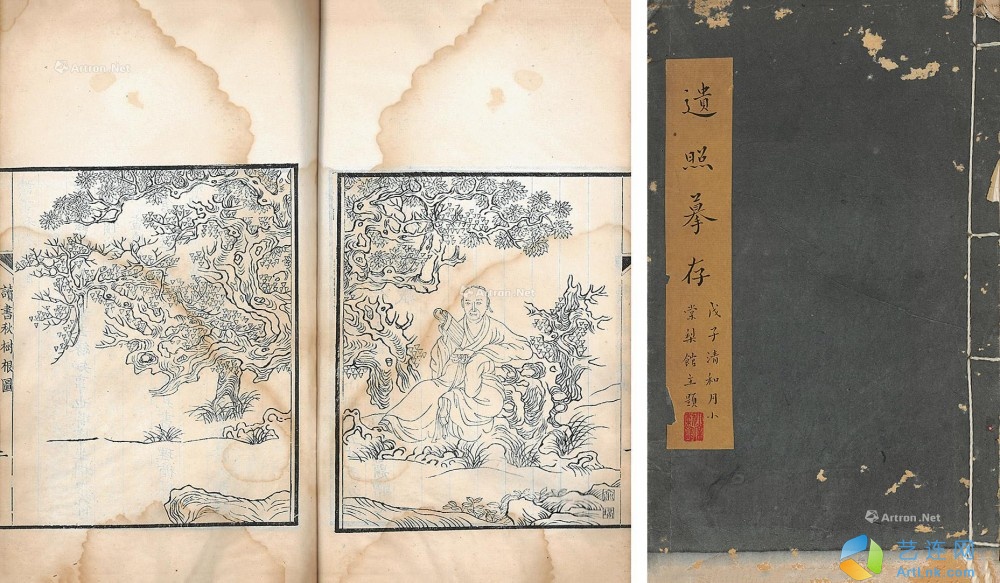 Artron.Net
讀書秋樹根圖
Artron.Net
遺照摹存
戊子清和月小
棠梨館主題
Artron.Net
艺连网
ArtLnk.com